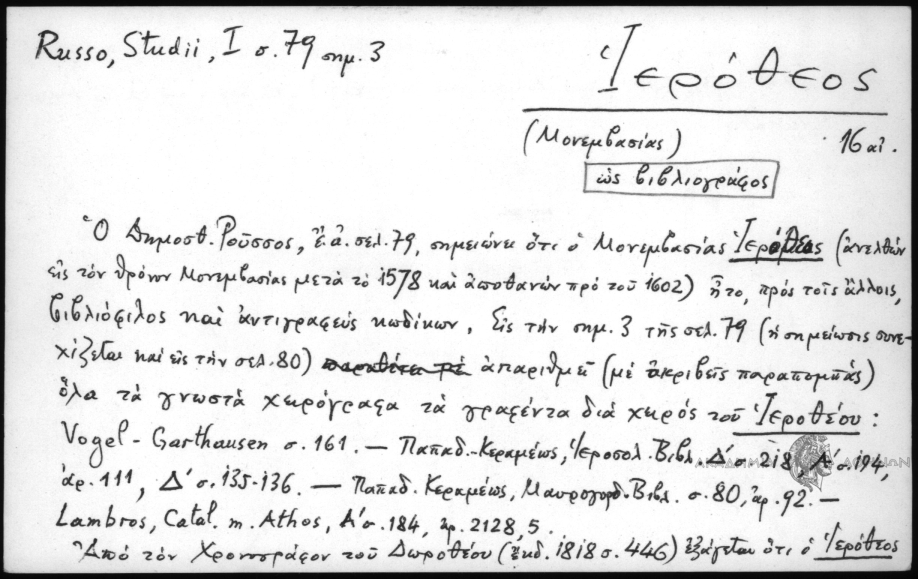 Russo, Studii, I σ. 79 σημ. 3
Ἱερόθεος
(Μονεμβασίας) 16 αἰ.
ὡς βιβλιογράφος
Ὁ Δημοσθ. Ροῦσσος, ἔ.ἀ. σελ. 79, σημειώνει ὅτι ὁ Μονεμβασίας Ἱερόθεος (ἀνελθών
εἰς τὸν θρόνον Μονεμβασίας μετὰ τὸ 1578 καὶ ἀποθανὼν πρό τοῦ 1602) ἦτο, πρός τοῖς ἄλλοις,
βιβλιόφιλος καὶ ἀντιγραφεύς κωδίκων. Εἰς τὴν σημ. 3 τῆς σελ. 79 (ἡ σημείωσις συνε-
χίζεται καὶ εἰς τὴν σελ. 80) ἀπαριθμεῖ (μὲ ἀκριβεῖς παραπομπάς)
ὅλα τὰ γνωστὰ χειρόγραφα τὰ γραφέντα διά χειρός τοῦ Ἱεροθέου :
Vogel - Garthausen σ. 161. — Παπαδ.-Κεραμέως, Ἱεροσολ. Βιβλ. Δ΄ σ. 218, Α΄ σ. 194,
ἀρ. 111, Δ΄ σ. 135-136. — Παπαδ. Κεραμέως, Μαυρογορδ. Βιβλ. σ. 80, ἀρ. 92. —
Lambros, Catal. m. Athos, Α΄ σ. 184, ἀρ. 2128, 5.
Ἀπό τὸν Χρονογράφον τοῦ Δωροθέου (ἔκδ. 1818 σ. 446) ἐξάγεται ὅτι ὁ Ἱερόθεος